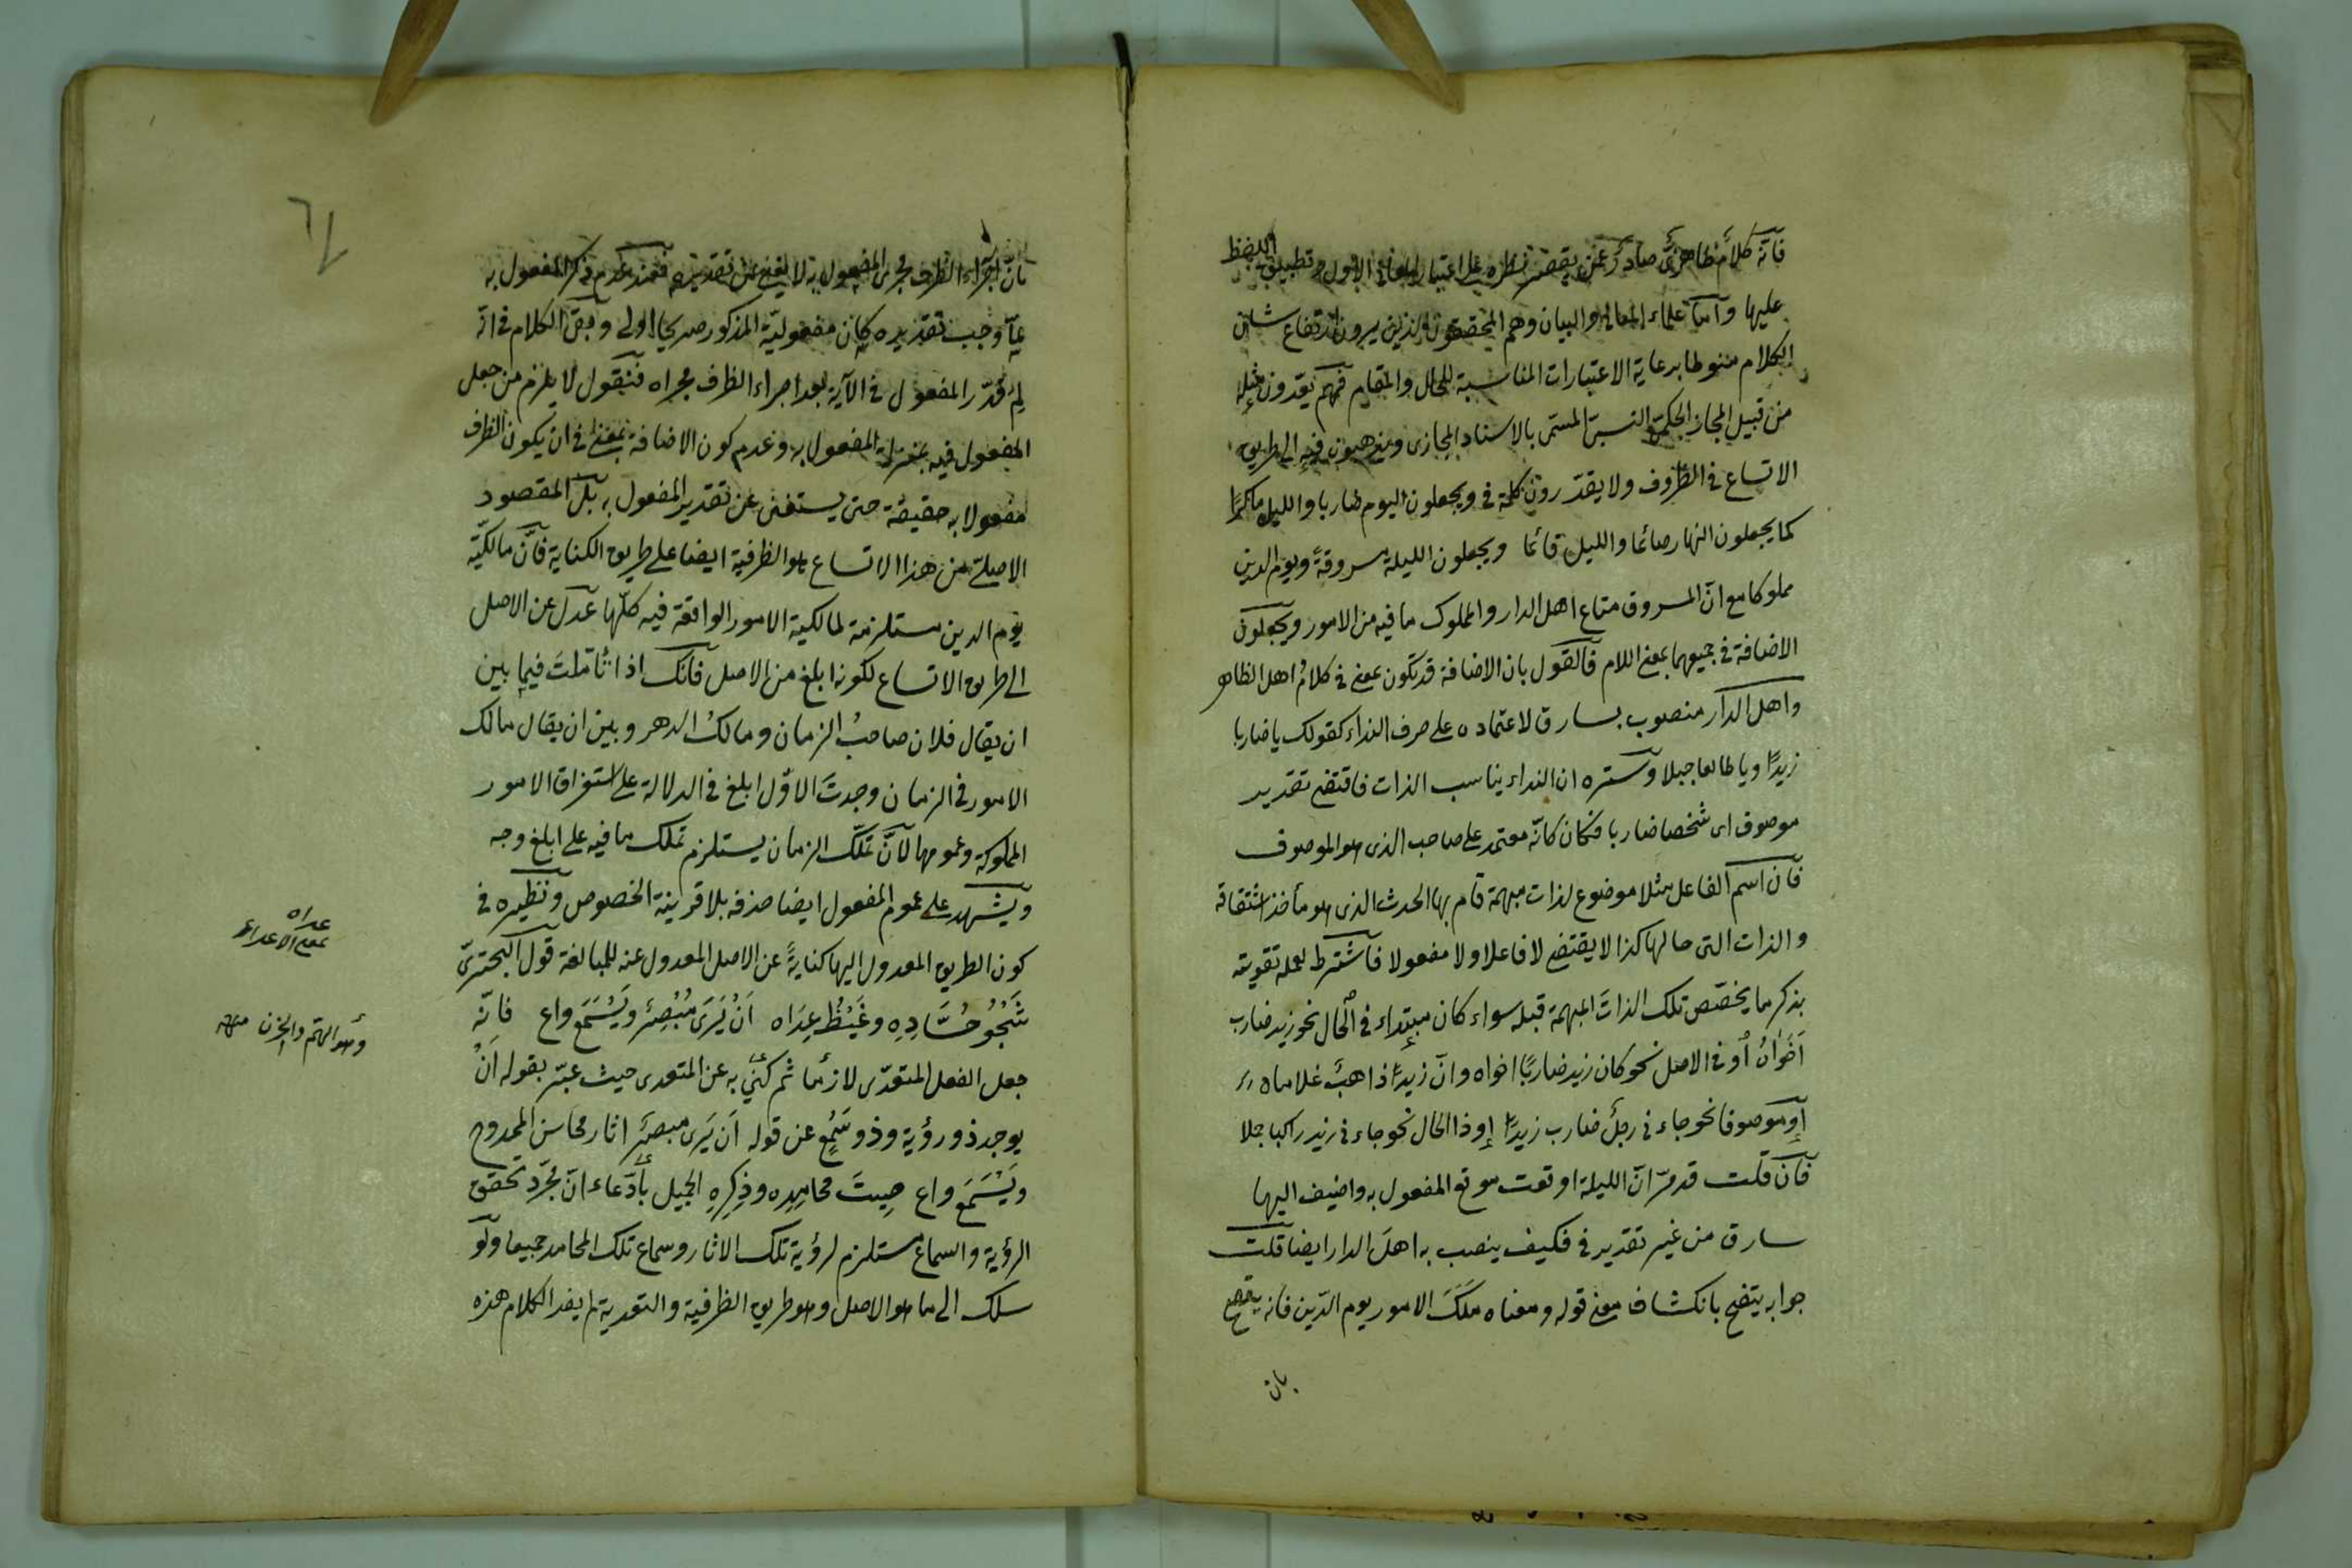 فانه كلام ظاهرى صادر عمن يقصر نظره على اعتبار المعانى الاول وتطبيق اللفظ
عليها واما علماء المعانى والبيان وهم المحققون الذين يرون ارتفاع شان
الكلام منوطا برعاية الاعتبارات المناسبة للحال والمقام فهم يعدون مثله
من قبيل المجاز الحكمى النسبى المسمى بالاسناد المجازى ويذهبون فيه الى طريق
الاتساع فى الظروف ولا يقدرون كلمة فى ويجعلون اليوم ضاربا والليل ماكرا
كما يجعلون النهار صائما والليل قائما ويجعلون الليلة مسروقةً ويوم الدين
مملوكا مع ان المسروق متاع اهل الدار والمملوك ما فيه من الامور ويجعلون
الاضافة فى جميعهما بمعنى اللام فالقول بان الاضافة قد تكون بمعنى فى كلام اهل الظاهر
واهل الدار منصوب بسارق لاعتماده على حرف النداء كقولك يا ضاربا
زيدًا ويا طالعا جبلا وستره ان النداء يناسب الذات فاقتضى تقدير
موصوف اى شخصا ضاربا فكان كانّه معتمد على صاحب الذى هو الموصوف
فان اسم الفاعل مثلا موضوع لذات مبهمة قام بها الحدث الذى هو مأخذ اشتقاقه
والذات التى حالها كذا لا يقتضى لا فاعلا ولا مفعولا فاشترط لعمله تقويته
بذكر ما يخصّص تلك الذات المبهمة قبله سواء كان مبتداء فى الحال نحو زيد ضارب
اخوانُ او فى الاصل نحو كان زيد ضاربًا اخواه وانّ زيدًا ذاهبٌ غلاماه
او موصوفا نحو جاء فى رجل ضارب زيدًا او ذا الحال نحو جاء فى زيد راكبا جلا
فان قلت قد مرّ انّ الليلة اوقعت موقع المفعول به واضيف اليها
سارق من غير تقدير فى فكيف ينصب به اهلَ الدار ايضا قلت
جوابه يتضح بانكشاف معنى قوله ومعناه ملَكَ الامور يوم الدّين فانه يتضح
بان
بان اجراء الظرف مجرى المفعول به لا يغنى عن تقديره فعند عدم ذكر المفعول به
لمّا وجب تقديره كان مفعولية المذكور صريحا اولى وبقى الكلام فى انّه
لِمَ قدّر المفعول فى الآية بعد اجراء الظرف مجراه فنقول لا يلزم من جعل
المفعول فيه بمنزلة المفعول به وعدم كون الاضافة بمعنى فى ان يكون الظرف
مفعولا به حقيقة حتى يستغنى عن تقدير المفعول به بل المقصود
الاصلى من هذا الاتساع هو الظرفية ايضا على طريق الكناية فانّ مالكيّة
يوم الدين مستلزمة لمالكية الامور الواقعة فيه كلّها عدل عن الاصل
الى طريق الاتساع لكونه ابلغ من الاصل فانّك اذا تأملت فيما بين
ان يقال فلان صاحبُ الزمان ومالكُ الدهر وبين ان يقال مالك
الامور فى الزمان وجدتَ الاوّل ابلغ فى الدلالة على استغراق الامور
المملوكة وعمومها لانّ تملّك الزمان يستلزم تملك ما فيه على ابلغ وجه
ويشهد على عموم المفعول ايضا حذفه بلا قرينة الخصوص ونظيره فى
كون الطريق المعدول اليها كنايةً عن الاصل المعدول عنه للمبالغة قول البحترىّ
شَجْوُ حُسَّادِهِ وغَيْظُ عِدَاه اَنْ يَرَى مُبْصِرٌ ويَسْمَعَ واع فانّه
جعل الفعل المتعدّى لازما ثم كنى به عن المتعدى حيث عبّر بقوله اَنْ
يوجد ذو رؤية وذو سَمْعٍ عن قوله اَن يَرى مبصر اثار محاسن الممدوح
ويَسْمَعَ واع صِيتَ محامِدِه وذِكرِهِ الجميل بادّعاء انّ مجرّد تحقق
الرؤية والسماع مستلزم لرؤية تلك الاثار وسماع تلك المحامد جميعا ولو
سلك الى ما هو الاصل وهو طريق الظرفية والتعدية لم يفد الكلام هذه
عداه
بمعنى الاعداء
وهو الهم والحزن منه